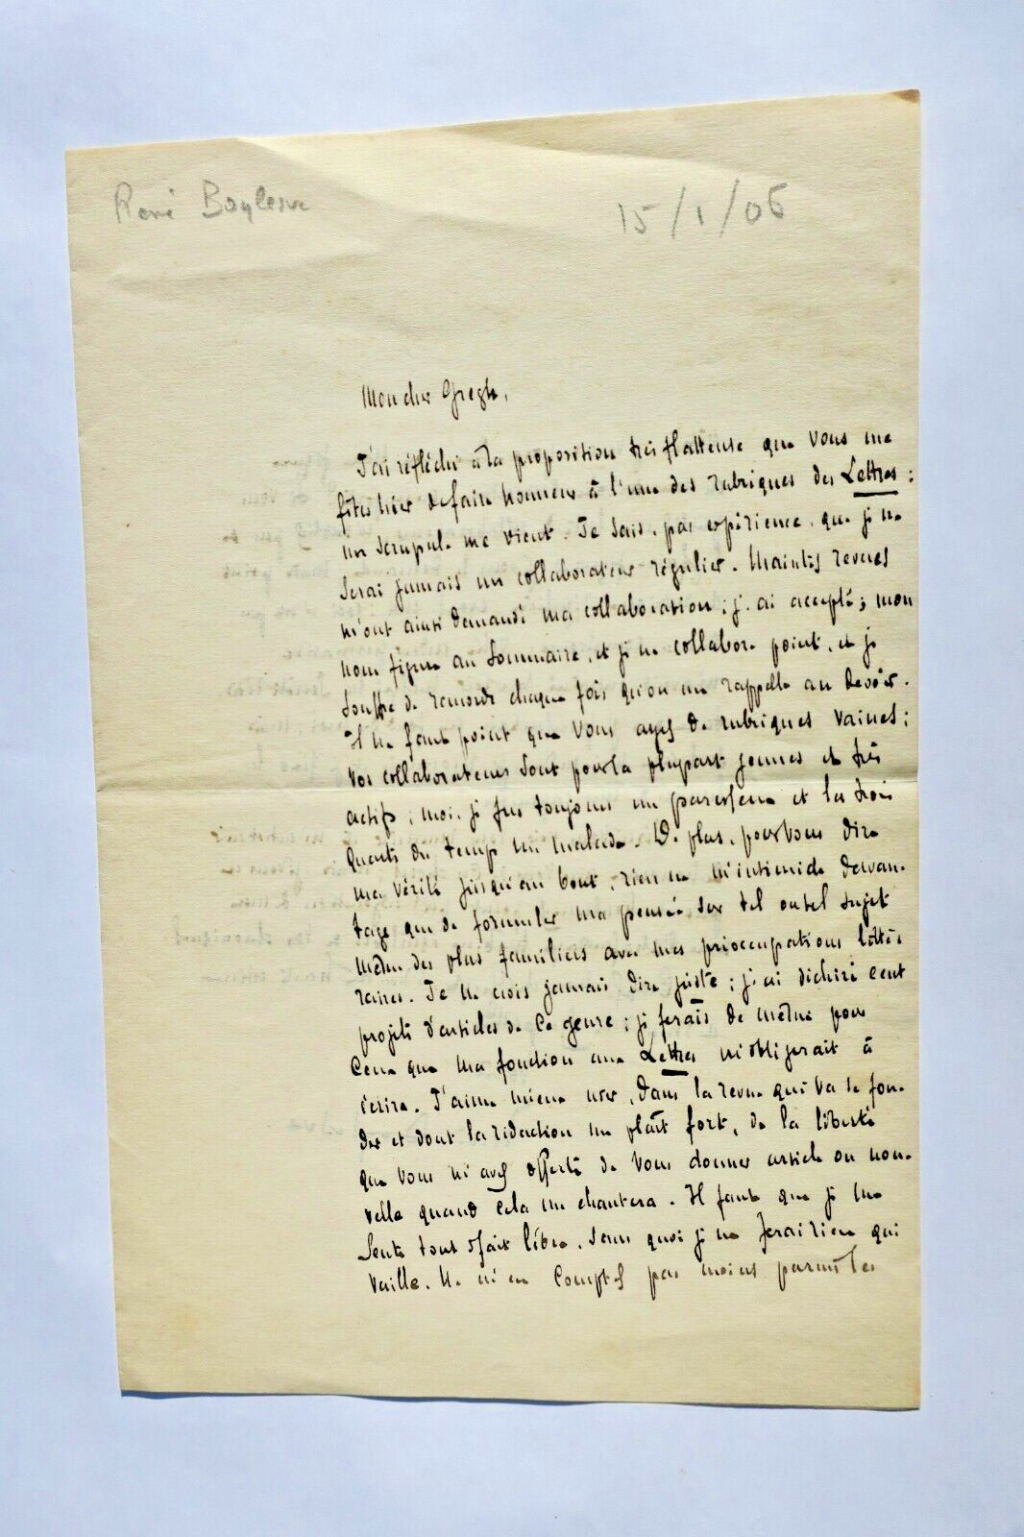 René Boylesve
15/1/06
Mon cher Gregh,
J'ai réfléchi à la proposition très flatteuse que vous me
fîtes hier de faire honneur à l'une des rubriques des Lettres :
un scrupule me vient. Je sais, par expérience, que je ne
serai jamais un collaborateur régulier. Maintes revues
m'ont ainsi demandé ma collaboration ; j'ai accepté ; mon
nom figure au sommaire, et je ne collabore point, et je
souffre de remords chaque fois qu'on me rappelle au devoir.
Il ne faut point que vous ayez de rubriques vaines ;
vos collaborateurs sont pour la plupart jeunes et très
actifs ; moi, je fus toujours un paresseux et les trois
quarts du temps un malade. De plus, pour vous dire
ma vérité jusqu'au bout, rien ne m'intimide davan-
tage que de formuler ma pensée sur tel ou tel sujet
même des plus familiers avec mes préoccupations litté-
raires. Je ne crois jamais dire juste ; j'ai déchiré cent
projets d'articles de ce genre ; je ferais de même pour
ceux que ma fonction aux Lettres m'obligerait à
écrire. J'aime mieux user, dans la revue qui va se fon-
der et dont la rédaction me plaît fort, de la liberté
que vous m'avez offerte de vous donner article ou nou-
velle quand cela me chantera. Il faut que je me
sente tout à fait libre, sans quoi je ne ferai rien qui
vaille. Ne m'en comptez pas moins parmi les